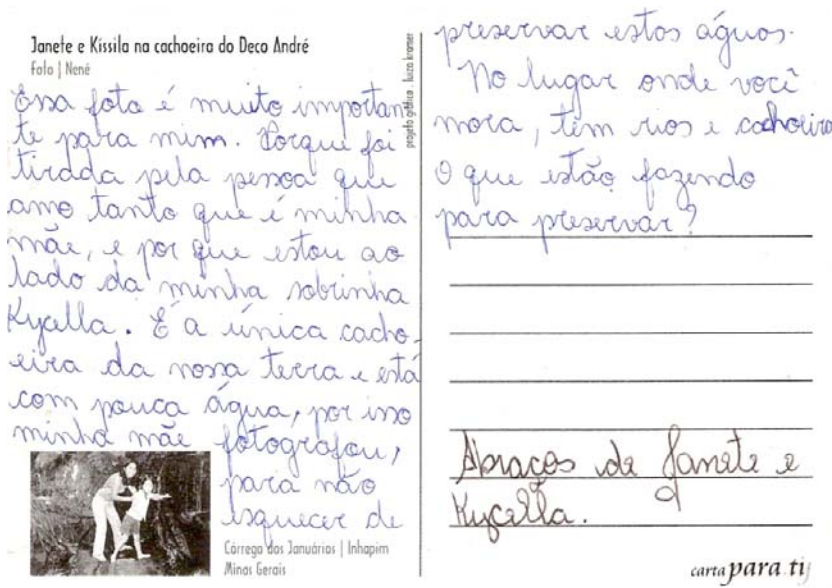 Janete e Kíssila na cachoeira do Deco André
Foto | Nenê
projeto gráfico . luiza kramer
Essa foto é muito importan
te para mim. Porque foi
tirada pela pessoa que
amo tanto que é minha
mãe, e por que estou ao
lado da minha sobrinha
Kycella. É a única cacho-
eira da nossa terra e está
com pouca água, por isso
minha mãe fotografou,
para não
esquecer de
Córrego dos Januários | Inhapim
Minas Gerais
preservar estas águas.
No lugar onde você
mora, têm rios e cachoeira
O que estão fazendo
para preservar?
Abraços de Janete e
Kycella.
carta para ti